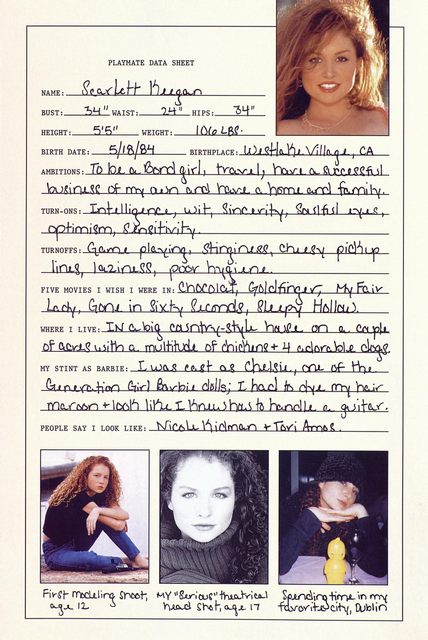 PLAYMATE DATA SHEET
NAME: Scarlett Keegan
BUST: 34" WAIST: 24" HIPS: 34"
HEIGHT: 5'5" WEIGHT: 106 LBS.
BIRTH DATE: 5/18/84 BIRTHPLACE: Westlake Village, CA
AMBITIONS: To be a Bond girl, travel, have a successful
business of my own and have a home and family.
TURN-ONS: Intelligence, wit, Sincerity, Soulful eyes,
optimism, Sensitivity.
TURNOFFS: Game playing, Stinginess, cheesy pickup
lines, laziness, poor hygiene.
FIVE MOVIES I WISH I WERE IN: Chocolat, Goldfinger, My Fair
Lady, Gone in Sixty Seconds, Sleepy Hollow.
WHERE I LIVE: In a big country-style house on a couple
of acres with a multitude of chickens + 4 adorable dogs.
MY STINT AS BARBIE: I was cast as Chelsie, one of the
Generation Girl Barbie dolls; I had to dye my hair
maroon + look like I knew how to handle a guitar.
PEOPLE SAY I LOOK LIKE: Nicole Kidman + Tori Amos.
First modeling shoot, age 12
My "Serious" theatrical head shot, age 17
Spending time in my favorite city, Dublin